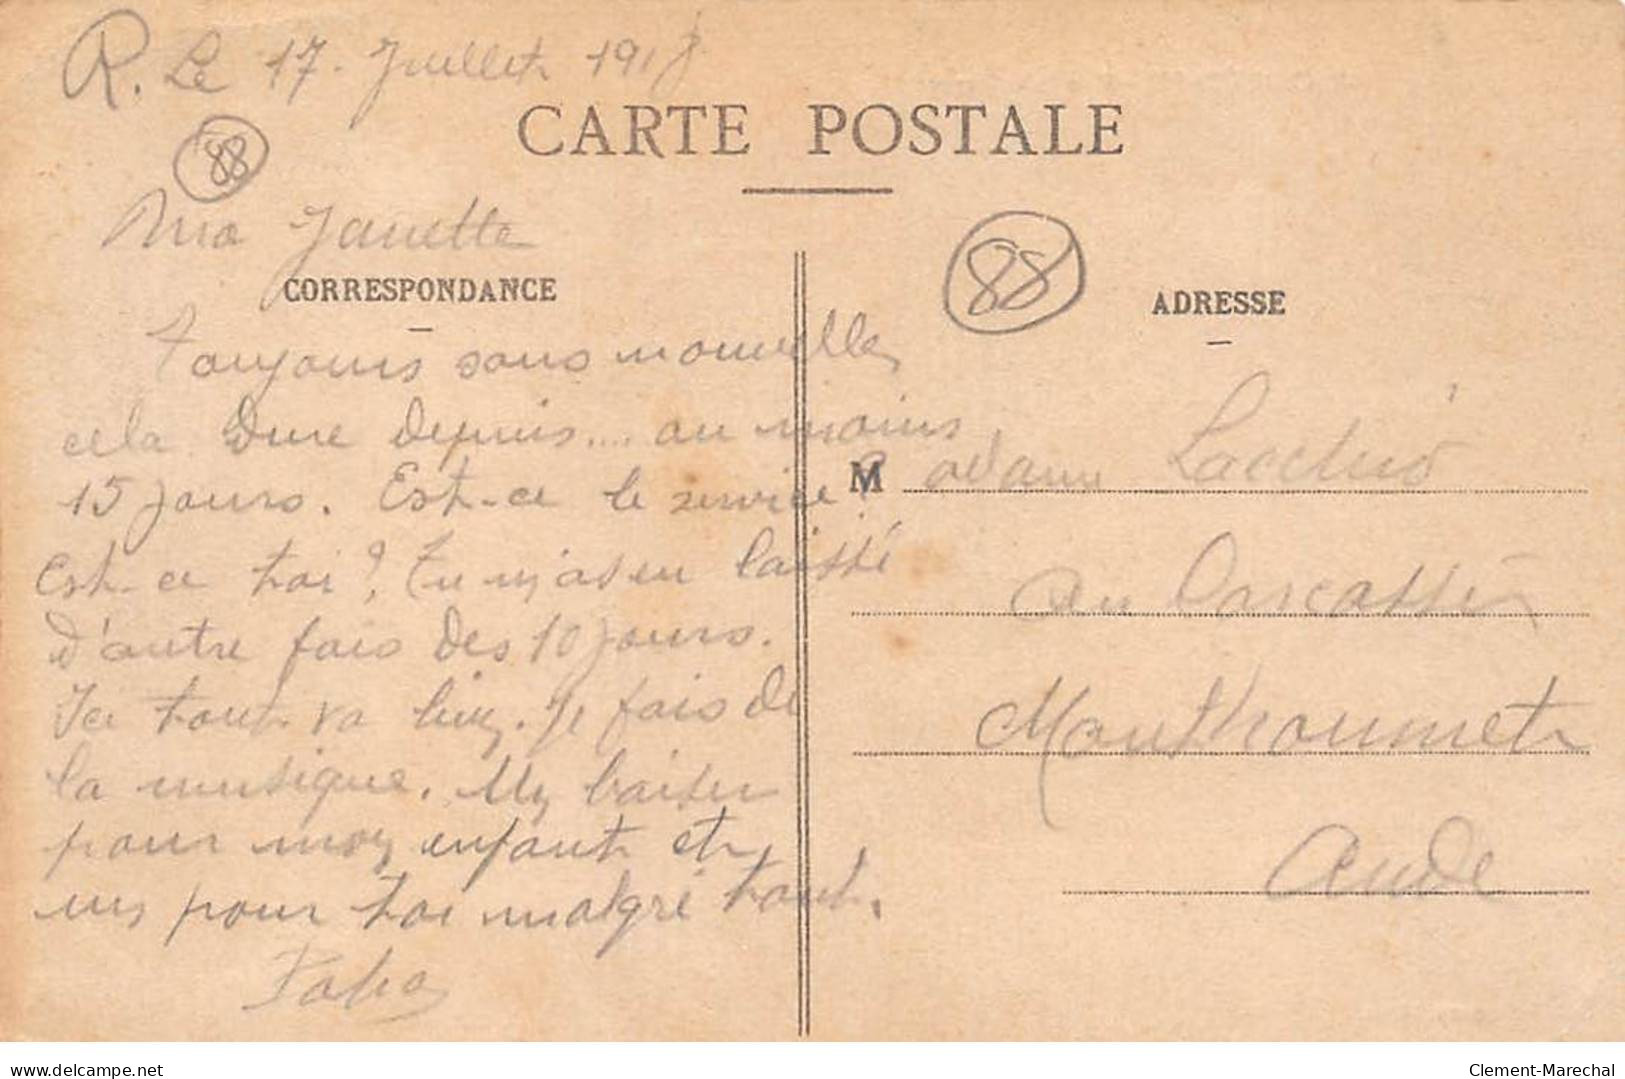 R. Le 17. Juillet 1918
CARTE POSTALE
88
Mia Janette
CORRESPONDANCE
Toujours sans nouvelles
cela dure depuis.... au moins
15 jours. Est-ce le service?
Est-ce toi? Tu m'as en laissé
d'autre fois des 10 jours.
Ici tout va bien. Je fais de
la musique. Un baiser
pour mon enfant et
un pour toi malgré tout.
88
ADRESSE
Madame
Monthoumet
Aude
delcampe.net
Clement-Marechal